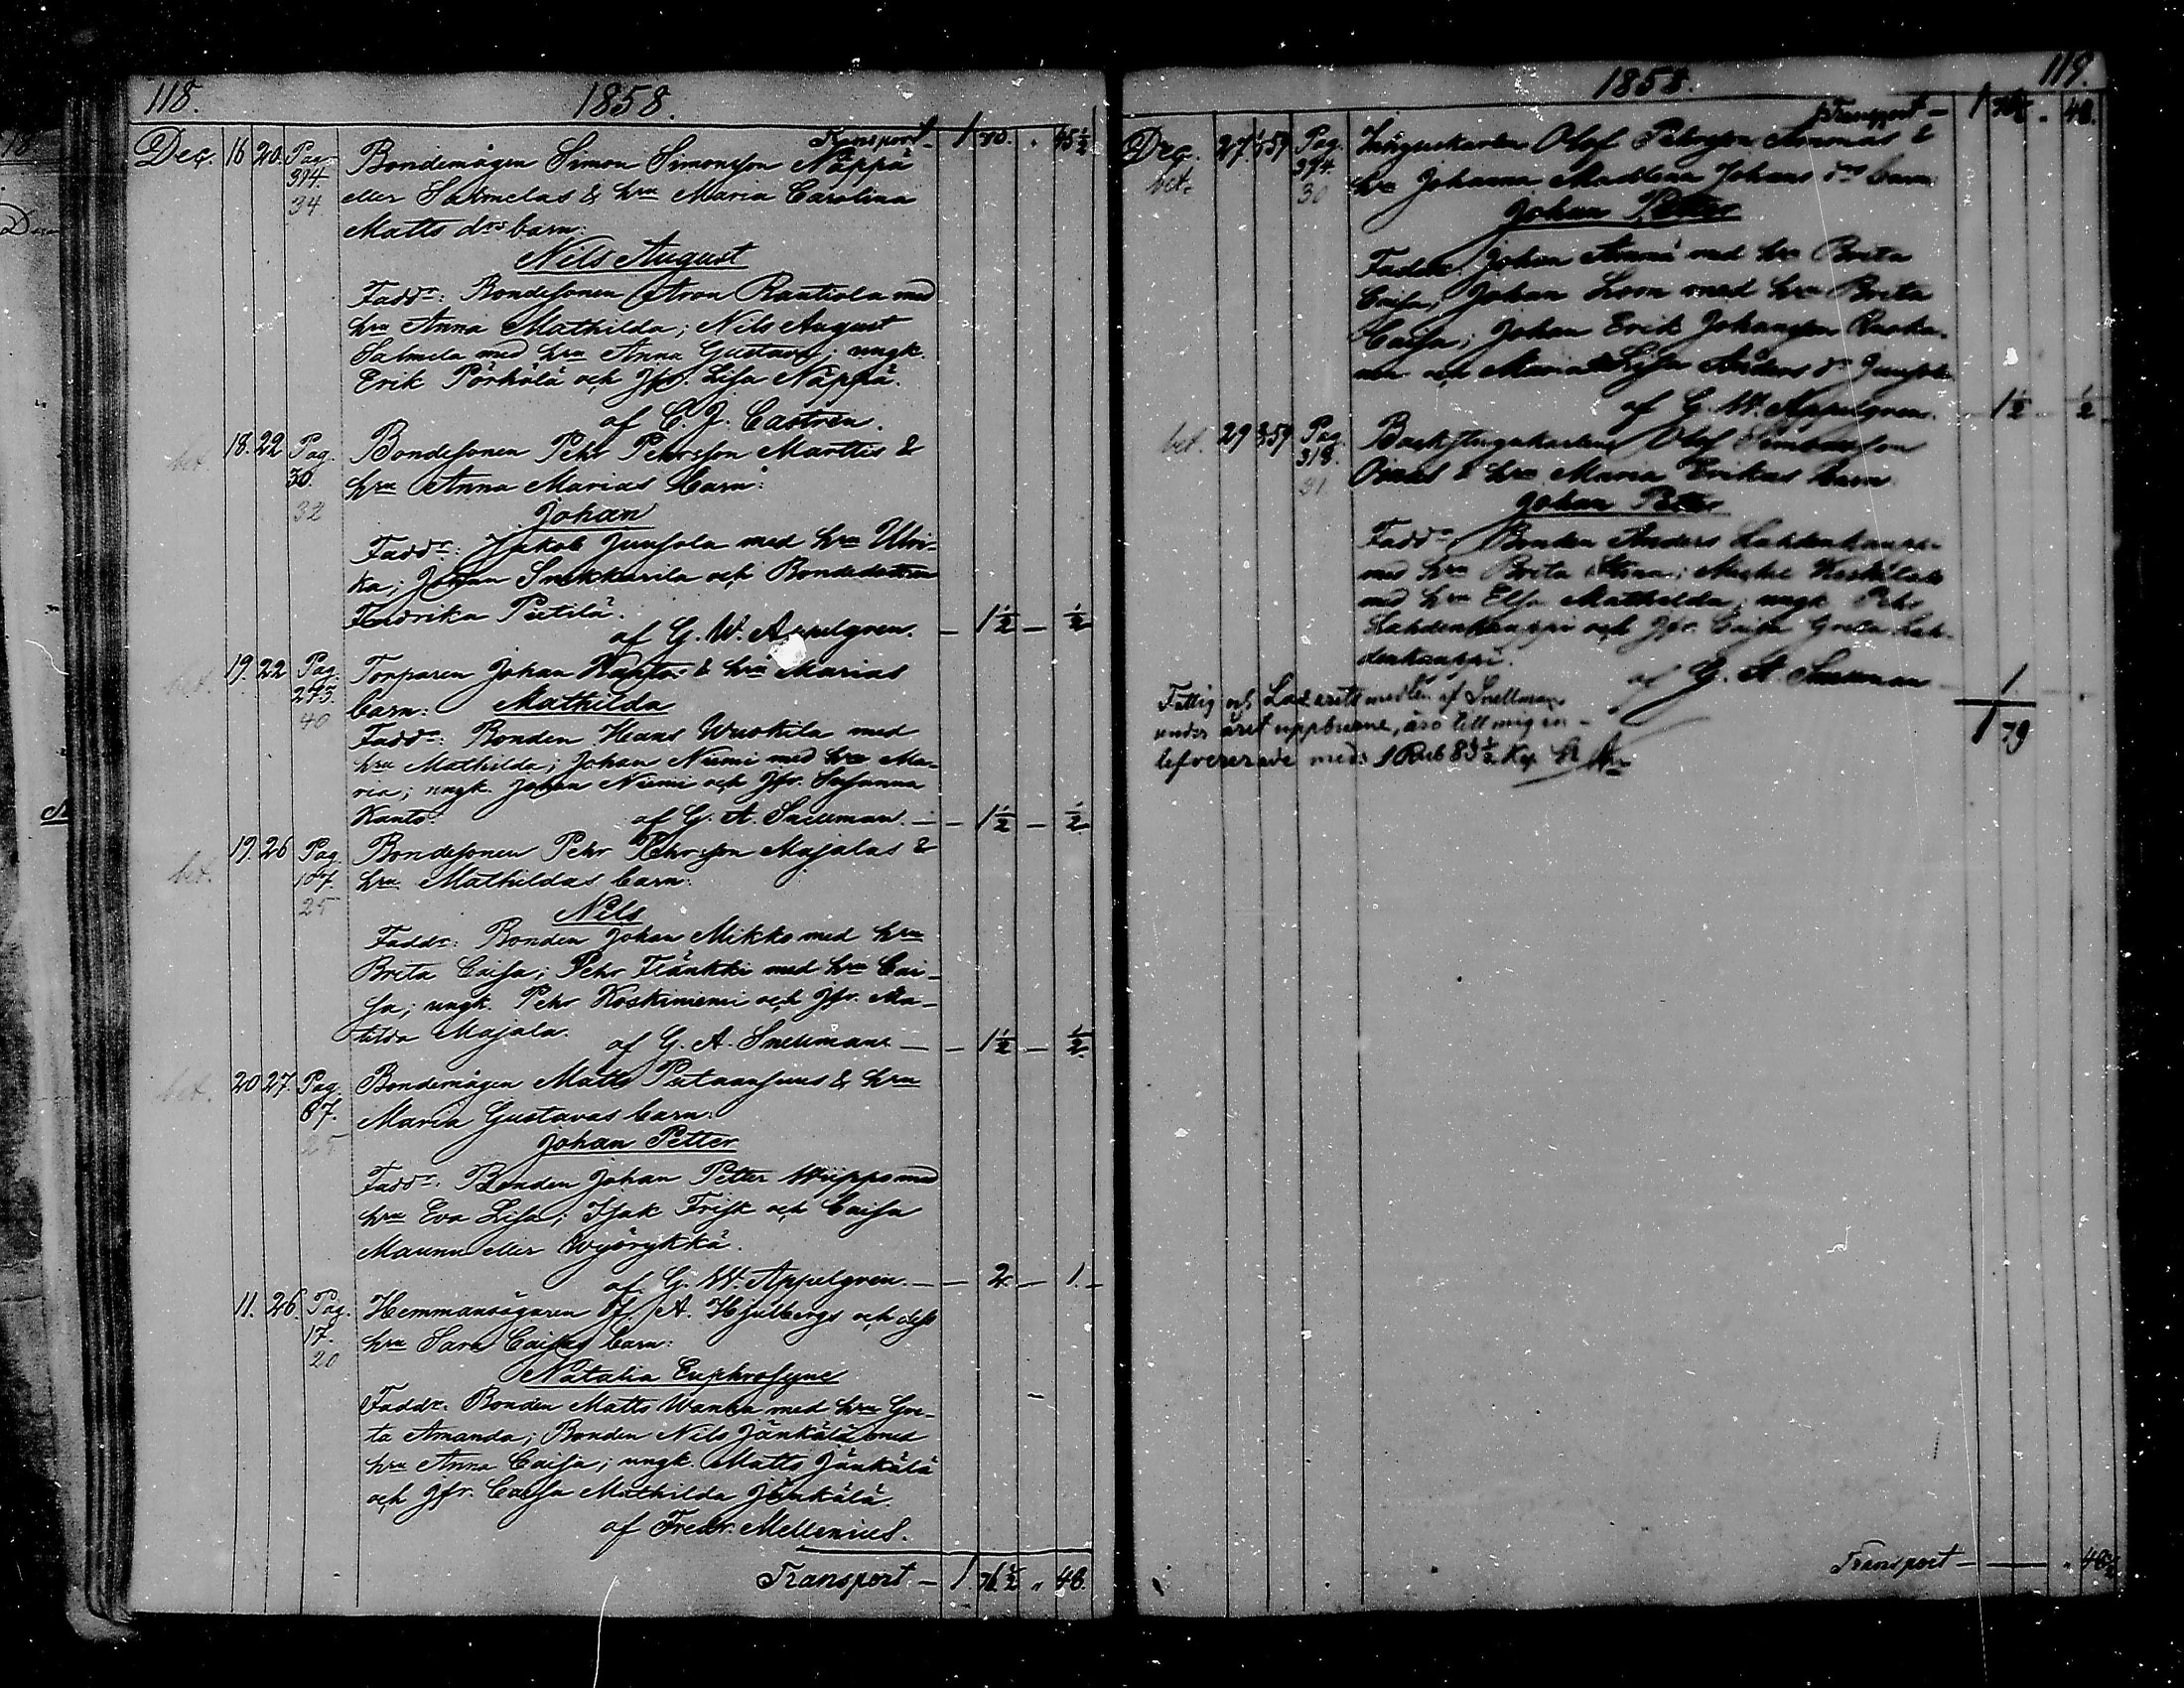 118.
1858.
Transport - 1 70. " 45½
Dec. 16 20. Pag. 394. 34 Bondemågen Simon Simonsson Näppä
eller Salmelas & hru Maria Carolina
Matts drs barn:
Nils August
Faddr: Bondesonen Aron Rautiola med
hru Anna Mathilda; Nils August
Salmela med hru Anna Gustava; ungk.
Erik Pörhölä och Jfr. Lisa Näppä.
af C. J. Castrén.
bet. 18. 22 Pag. 30. 32 Bondesonen Pehr Pehrsson Marttis &
hru Anna Marias barn:
Johan
Faddr: Jakob Junsola med hru Ulri-
ka; Johan Snikkarila och Bondedottren
Fredrika Pietilä.
af G. W. Appelgren. - 1½ - ½
bet. 19. 22 Pag. 273. 40 Torparen Johan & hru Marias
barn: Mathilda
Faddr: Bonden Hans Wuokila med
hru Mathilda; Johan Niemi med hru Ma-
ria; ungk. Johan Niemi och Jfr. Susanna
Kanto.
af G. A. Snellman. - 1½ - ½
bet. 19. 26 Pag. 25 Bondesonen Pehr Pehrsson Majalas &
hru Mathildas barn:
Nils
Faddr: Bonden Johan Mikko med hru
Brita Caisa; Pehr Fränkki med hru Cai-
sa; ungk. Pehr Koskiniemi och Jfr. Ma-
tilda Majala.
af G. A. Snellman - 1½ - ½
bet. 20 27. Pag. 87. 25 Bondemågen Matts Putaansuus & hru
Maria Gustavas barn:
Johan Petter
Faddr: Bonden Johan Petter Wiippo med
hru Eva Lisa; Isak Frisk och Caisa
Maunu eller Wyörykkä.
af G. W. Appelgren. - 2. - 1. -
11. 26. Pag. 17. 20 Hemmansägaren A. Hjulbergs och dess
hru Sara Caisas barn:
Natalia Euphrosyne
Faddr: Bonden Matts Wanha med hru Gre-
ta Amanda; Bonden Nils Jänkälä med
hru Anna Caisa; ungk. Matts Jänkälä
och Jfr. Caisa Mathilda Jänkälä.
af Fredr. Mellenius.
Transport - 1. 76½ " 48.
1858.
119.
Transport - 1 76½ " 48.
Dec. bet. 27. 1/59 Pag. 394. 30 Olof Petersson &
hru Johanna Madlena Johans drs barn:
Johan Petter
Faddr: Johan med hru Brita
Caisa; Johan med hru Brita
Caisa; Johan Erik Johansson Ruoka-
nen och Maria Lisa Anders dr Junsola
af G. W. Appelgren. 1½ ½
bet. 29 /59 Pag. 318. 31 Backstugukarlen Olof
Ojalas & hru Maria Erikas barn
Johan Petter
Faddr: Bonden Anders Lahdenkauppi
med hru Brita Stina; Michel
med hru Elsa Mathilda; ungk. Pehr
Lahdenkauppi och Jfr. Caisa Greta Lah-
denkauppi.
af G. A. Snellman 1.
Fattig och Lazaretts medlen af Snellman
under året uppburne, äro till mig in-
lefvererade med 1 Rub 83½ Kop.
1 79
Transport - - " 48½